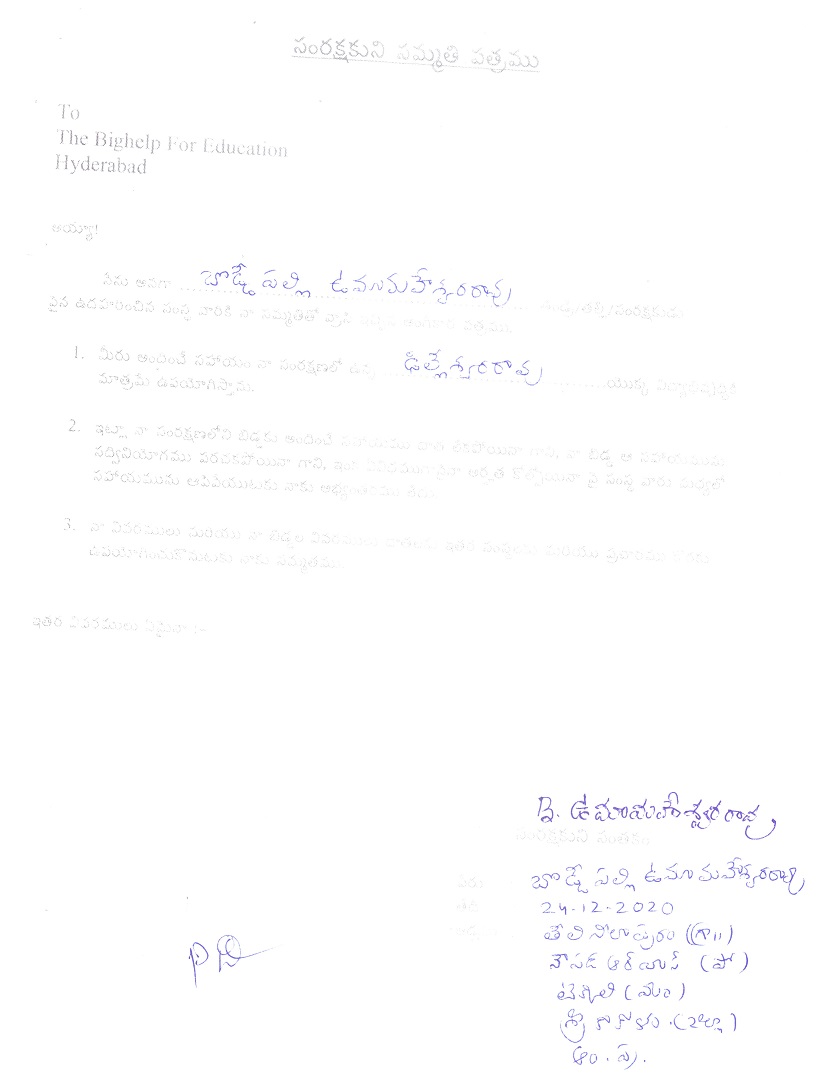 సంరక్షకుని సమ్మతి పత్రము
To
The Bighelp For Education
Hyderabad
అయ్యా!
నేను అనగా బొడ్డేపల్లి ఉమామహేశ్వరరావు తండ్రి/తల్లి/సంరక్షకుడు
పైన ఉదహరించిన సంస్థ వారికి నా సమ్మతితో వ్రాసి ఇచ్చిన అంగీకార పత్రము.
1. మీరు అందించే సహాయం నా సంరక్షణలో ఉన్న డిల్లేశ్వరరావు యొక్క విద్యాభివృద్ధికి
మాత్రమే ఉపయోగిస్తాను.
2. ఇట్లూ నా సంరక్షణలోని బిడ్డకు అందించే సహాయము దాత లేకపోయినా గాని, నా బిడ్డ ఆ సహాయమును
సద్వినియోగము పరచకపోయినా గాని, ఇంకా ఏవిధముగానైనా అర్హత కోల్పోయినా పై సంస్థ వారు మధ్యలో
సహాయమును ఆపివేయుటకు నాకు అభ్యంతరము లేదు.
3. నా వివరములు మరియు నా బిడ్డల వివరములు దాతలకు ఇతర సంస్థలకు మరియు ప్రచారము కొరకు
ఉపయోగించుకొనుటకు నాకు సమ్మతము.
ఇతర వివరములు ఏమైనా :-
B. ఉమామహేశ్వరరావు
సంరక్షకుని సంతకం
పేరు బొడ్డేపల్లి ఉమామహేశ్వరరావు
తేది 24-12-2020
తేలినీలాపురం (గ్రా॥)
నౌపడ ఆర్ యస్ (పో)
టెక్కలి (మం)
శ్రీకాకుళం.(జిల్లా)
ఆం.ప్ర.
PD